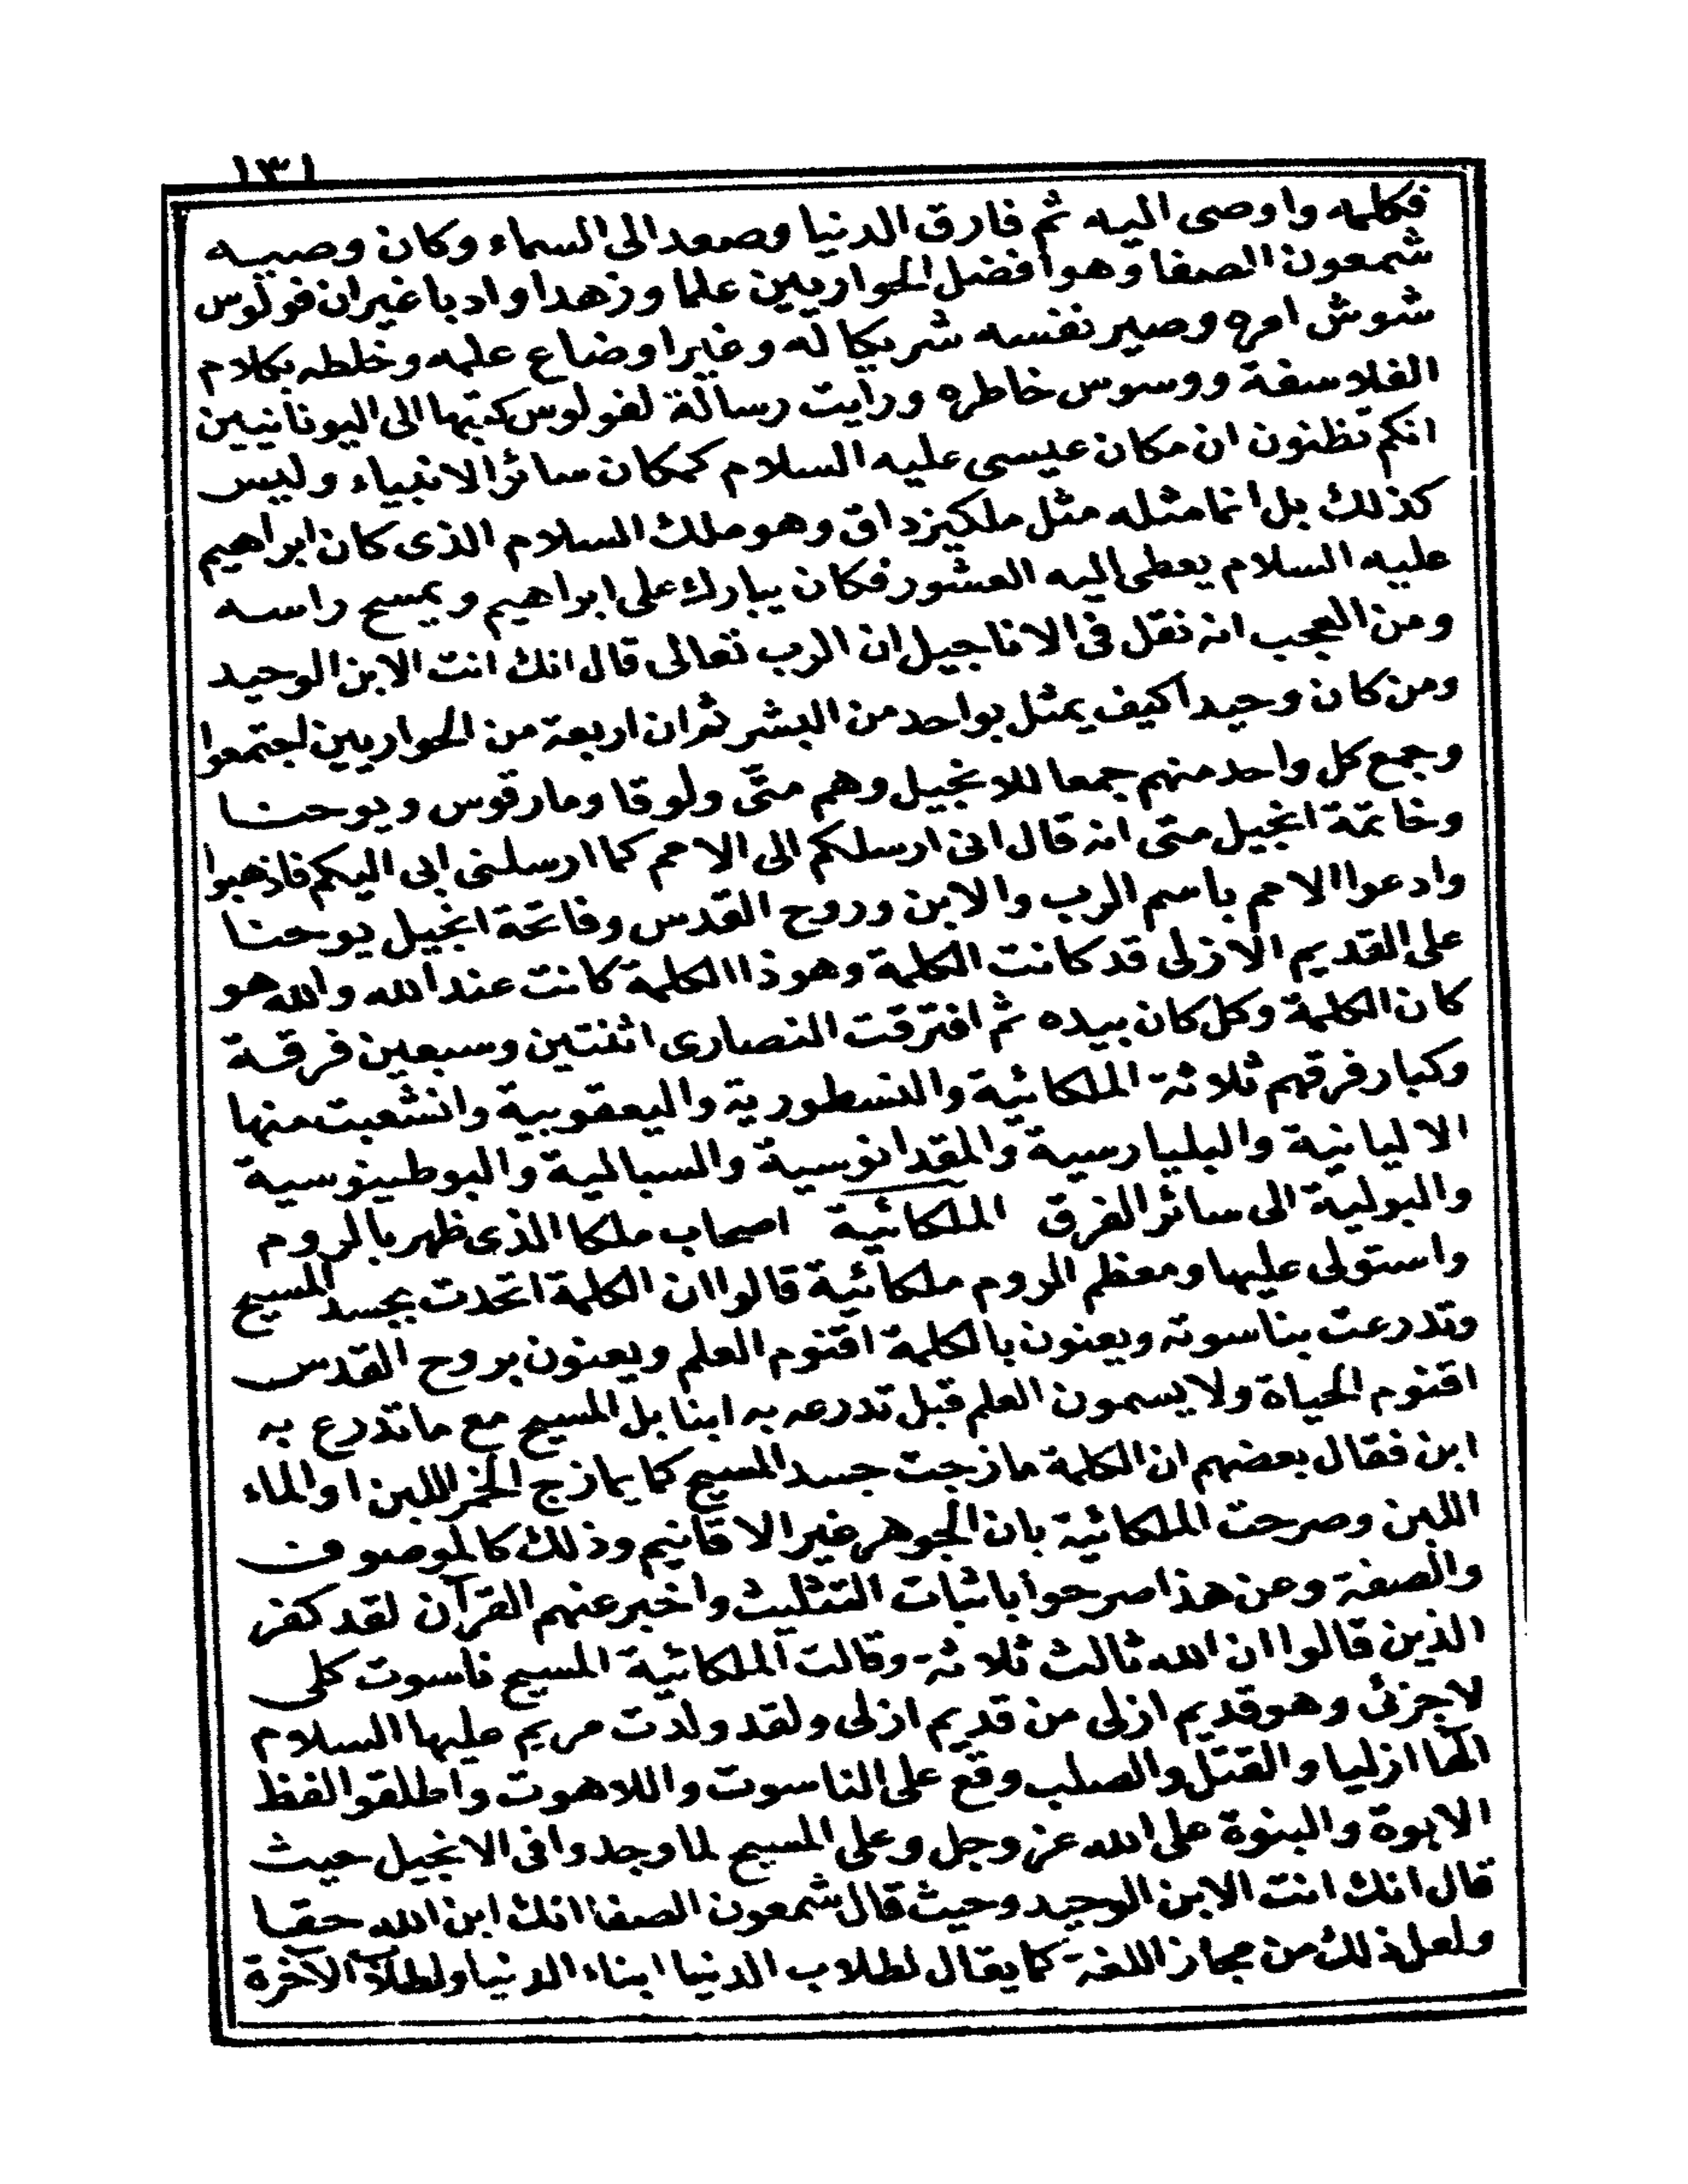 ١٣١
فكلمه واوصى اليه ثم فارق الدنيا وصعد الى السماء وكان وصييه
شمعون الصفا وهو افضل الحواريين علما وزهدا وادبا غير ان فولوس
شوش امره وصير نفسه شريكا له وغير اوضاع علمه وخلطه بكلام
الفلاسفة ووسوس خاطره ورأيت رسالة لفولوس كتبها الى اليونانيين
انكم تظنون ان مكان عيسى عليه السلام كمكان سائر الانبياء وليس
كذلك بل انما مثله مثل ملكيزداق وهو ملك السلام الذى كان ابراهيم
عليه السلام يعطى اليه العشور فكان يبارك على ابراهيم ويمسح راسه
ومن العجب انه نقل فى الاناجيل ان الرب تعالى قال انك انت الابن الوحيد
ومن كان وحيدا كيف يمثل بواحد من البشر ثم ان اربعة من الحواريين اجتمعوا
وجمع كل واحد منهم جمعا للانجيل وهم متى ولوقا ومارقوس ويوحنا
وخاتمة انجيل متى انه قال انى ارسلكم الى الامم كما ارسلنى ابى اليكم فاذهبوا
وادعوا الامم باسم الرب والابن وروح القدس وفاتحة انجيل يوحنا
على القديم الازلى قد كانت الكلمة وهوذا الكلمة كانت عند الله والله هو
كان الكلمة وكل كان بيده ثم افترقت النصارى اثنتين وسبعين فرقة
وكبار فرقهم ثلاثة الملكائية والنسطورية واليعقوبية وانشعبت منها
الاليانية والبليارسية والمقدانوسية والسبالية والبوطينوسية
والبولية الى سائر الفرق الملكائية اصحاب ملكا الذى ظهر بالروم
واستولى عليها ومعظم الروم ملكائية قالوا ان الكلمة اتحدت بجسد المسيح
وتدرعت بناسوته ويعنون بالكلمة اقنوم العلم ويعنون بروح القدس
اقنوم الحياة ولا يسمون العلم قبل تدرعه به ابنا بل المسيح مع ما تدرع به
ابن فقال بعضهم ان الكلمة مازجت جسد المسيح كما يمازج الخمر اللبن او الماء
اللبن وصرحت الملكائية بان الجوهر غير الاقانيم وذلك كالموصوف
والصفة وعن هذا صرحوا باثبات التثليث واخبر عنهم القرآن لقد كفر
الذين قالوا ان الله ثالث ثلاثة وقالت الملكائية المسيح ناسوت كلى
لا جزئى وهو قديم ازلى من قديم ازلى ولقد ولدت مريم عليها السلام
الها ازليا والقتل والصلب وقع على الناسوت واللاهوت واطلقوا لفظ
الابوة والبنوة على الله عز وجل وعلى المسيح لما وجدوا فى الانجيل حيث
قال انك انت الابن الوحيد وحيث قال شمعون الصفا انك ابن الله حقا
ولعل ذلك من مجاز اللغة كما يقال لطلاب الدنيا ابناء الدنيا ولطلاب الآخرة